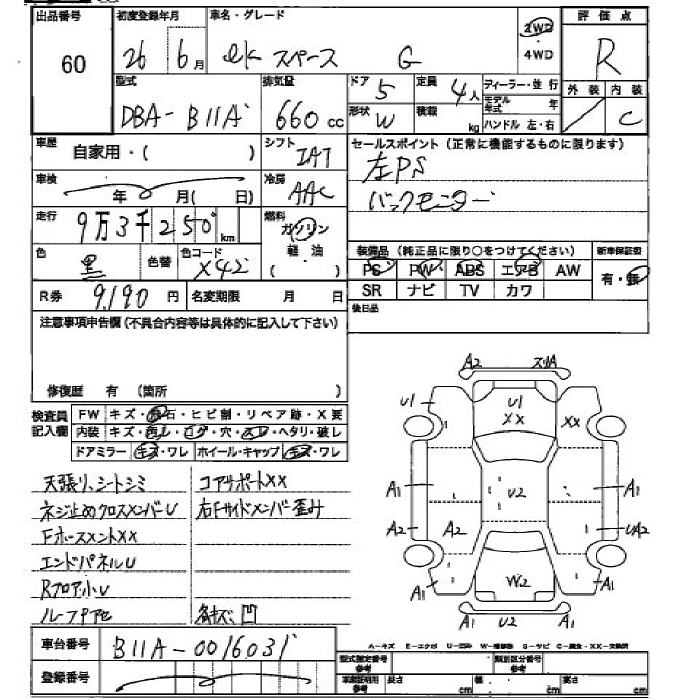 出品番号 初度登録年月 車名・グレード 評価点
60 26 6月 ekスペース G 2WD・4WD R
型式 排気量 ドア 5 定員 4人 ディーラー・並行 外装 内装
DBA-B11A 660cc 形状 W 積載 kg モデル年式 年 C
ハンドル 左・右
車歴 自家用・( ) シフト IAT セールスポイント(正常に機能するものに限ります)
左PS
車検 年 月(日) 冷房 AAC バックモニター
走行 9万3千250km 燃料 ガソリン
軽・油
( )
色 黒 色替 色コード X42 装備品(純正品に限り〇をつけてください) 新車保証書
PS PW ABS エアB AW 有・無
R券 9,190円 名変期限 月 日 SR ナビ TV カワ
注意事項申告欄(不具合内容等は具体的に記入して下さい) 後日品
修復歴 有 (箇所 )
検査員記入欄 FW キズ・飛石・ヒビ割・リペア跡・X要
内装 キズ・汚レ・コゲ・穴・スレ・ヘタリ・破レ
ドアミラー キズ・ワレ ホイール・キャップ キズ・ワレ
天張り、シートシミ コアサポートXX
ネジ止めクロスメンバーU 右Fサイドメンバー歪み
FホースメントXX
エンドパネルU
Rフロア小U
ルーフ 各キズ凹
A2 スリA
U1 U1 XX XX
A1 U2 A1
A2 A2 UA2
A1 W2 A1
A1 U2 A1
車台番号 B11A-0016031
A-キズ E-エクボ U-凹ミ W-補修跡 S-サビ C-腐食・XX-交換済
登録番号 型式指定番号 参考 類別区分番号 参考
車庫証明用 参考 長さ cm 幅 cm 高さ cm